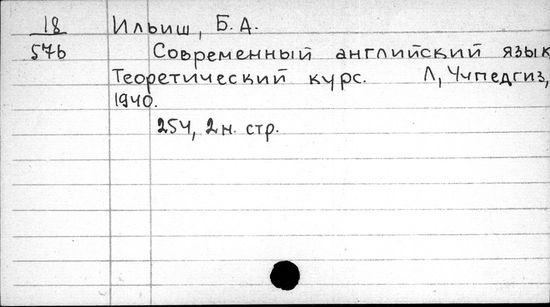 18 Ильиш, Б. А.
576 Современный английский язык
Теоретический курс. Л, Учпедгиз,
1940.
254, 2 н. стр.